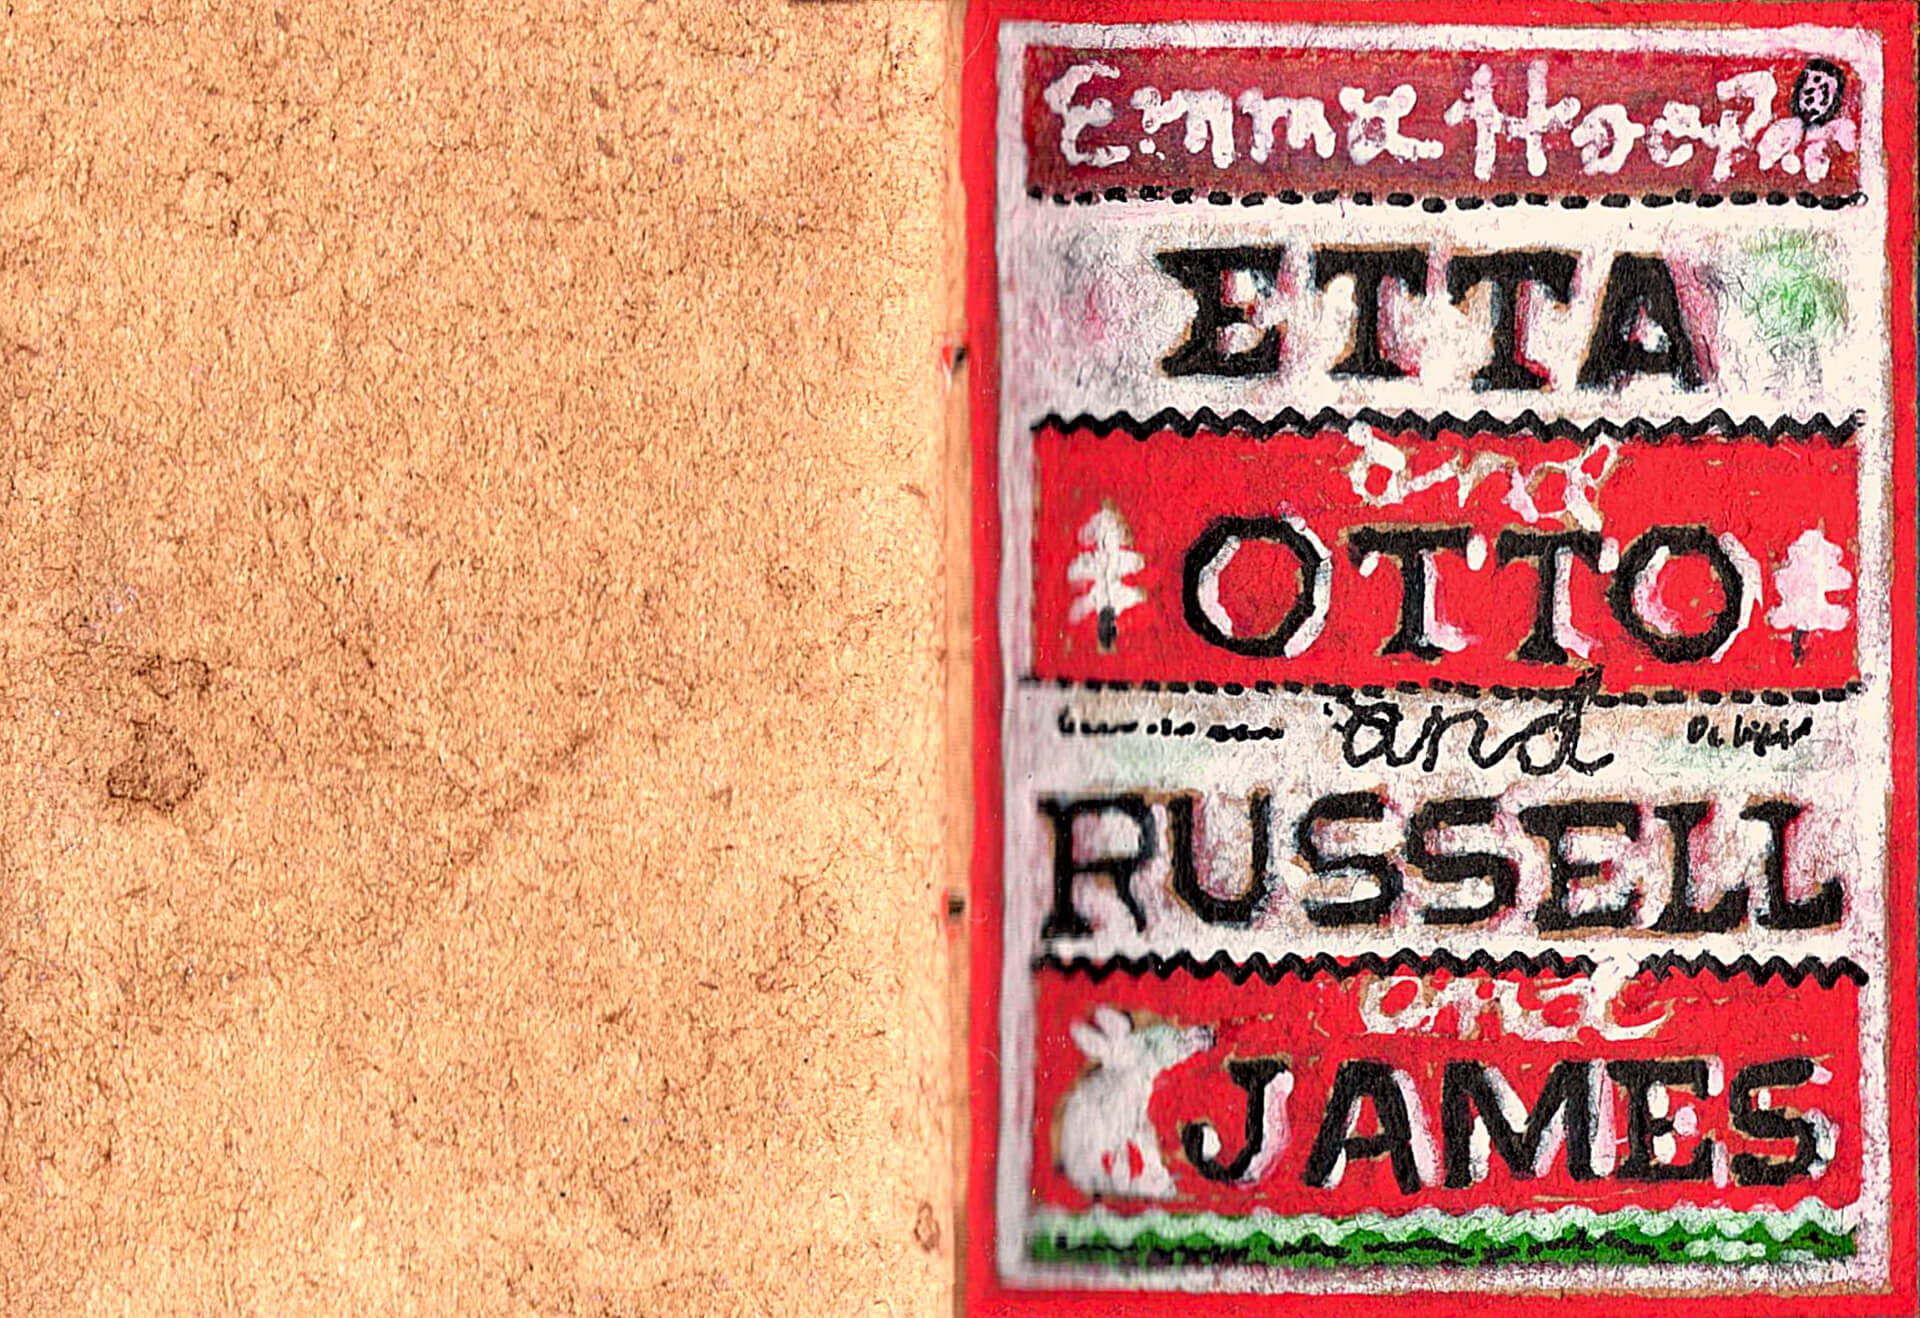 Emma Hooper
ETTA
and
OTTO
and
RUSSELL
and
JAMES